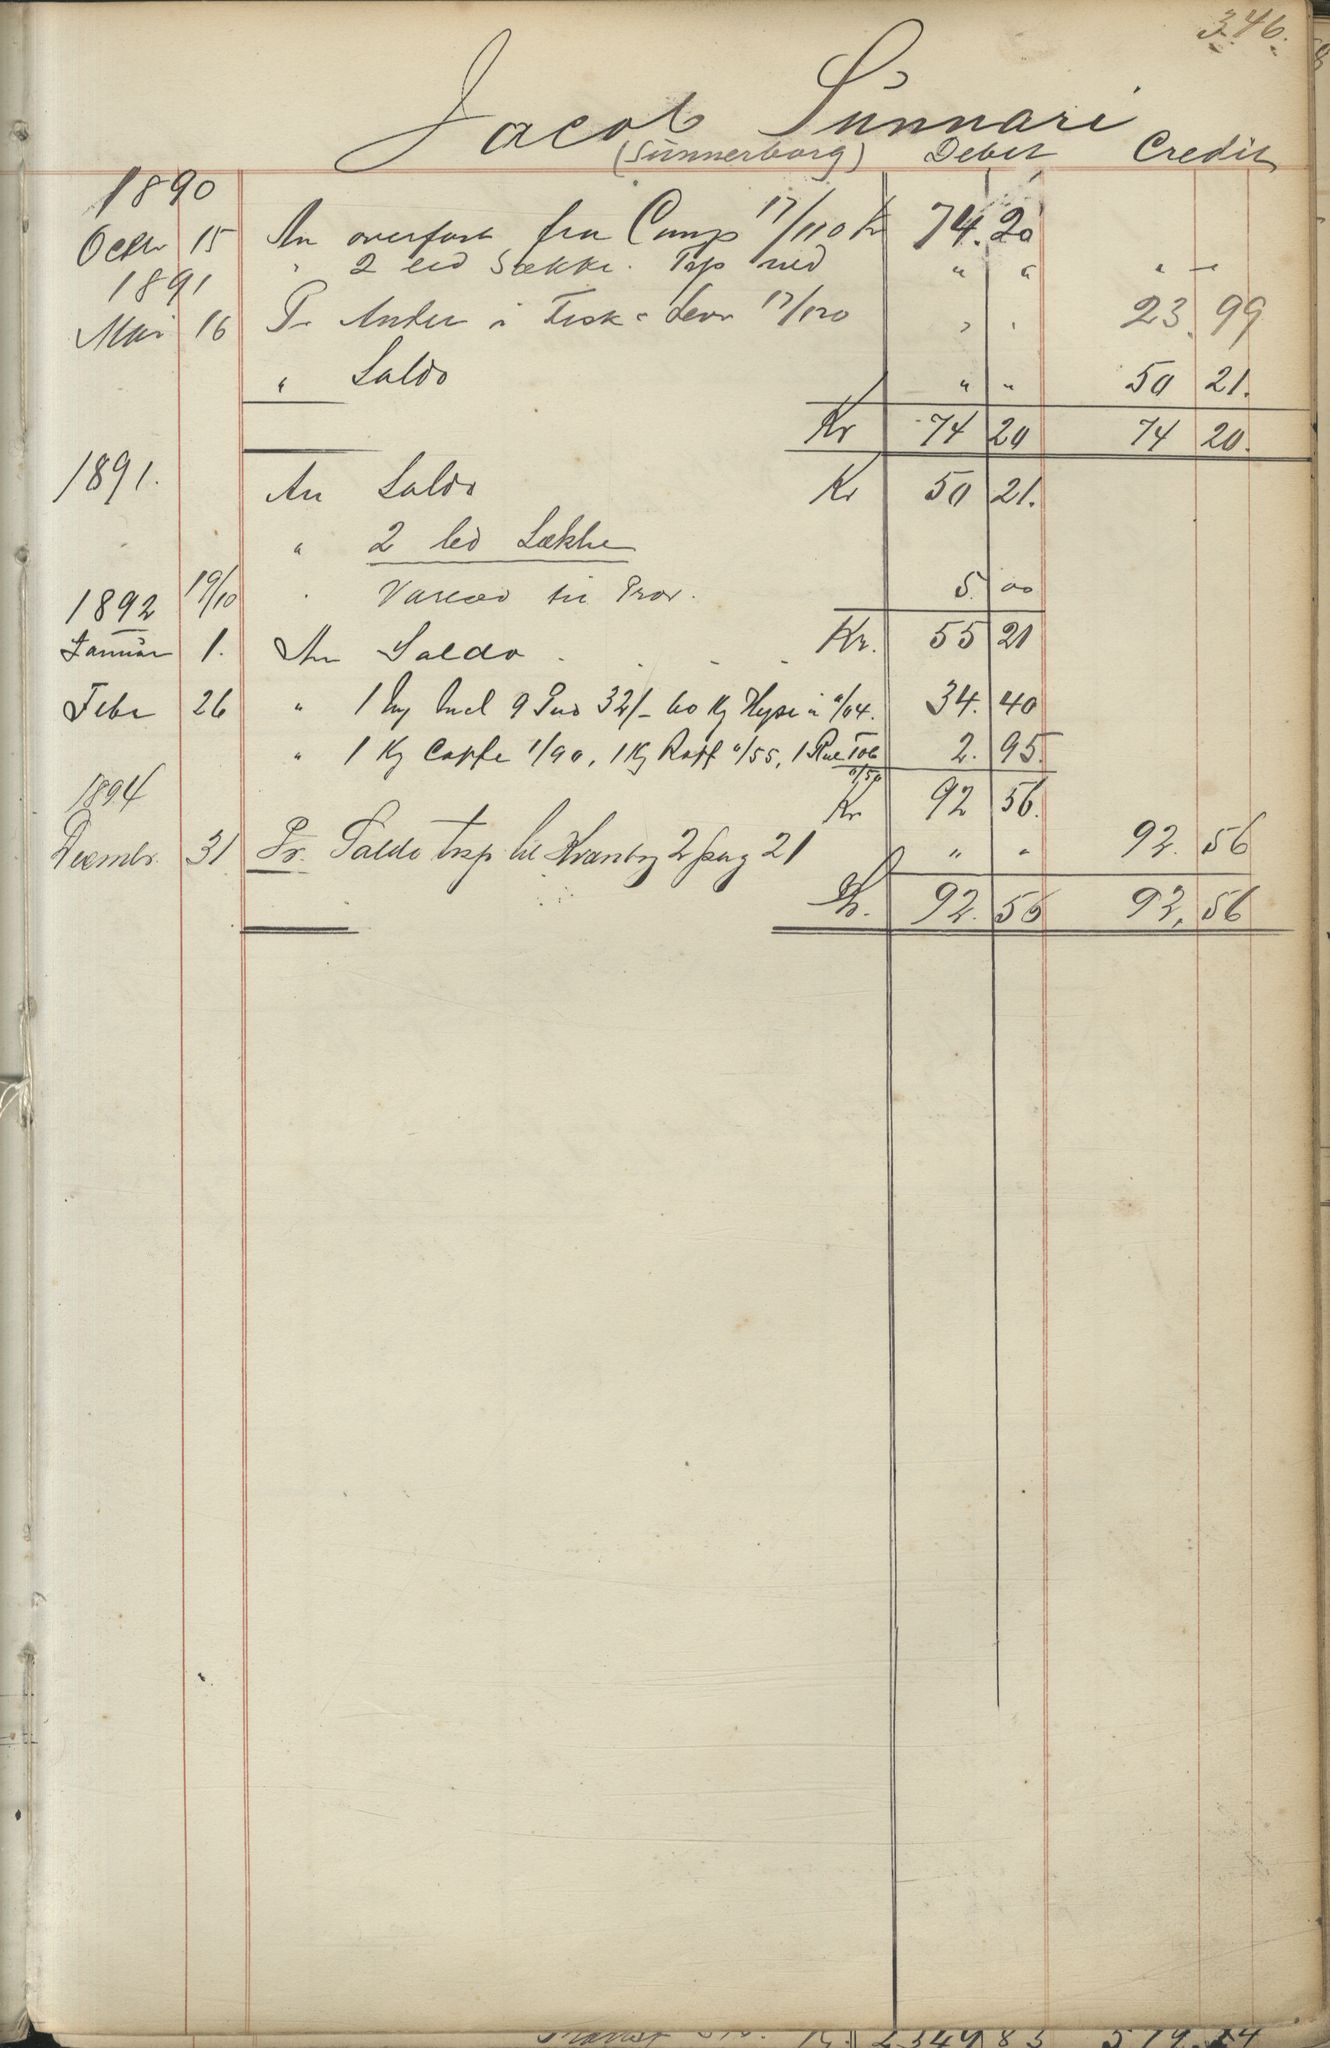 346.
Jacob Sünnari
(Sünnerborg) Debet Credit
1890
Octbr 15 An overført fra Camp 17/110 Kr 74. 20
" 2 led Sække. Trp ned " " " "
1891
Mai 16 Pr Andel i Fisk & Levr 17/120 " " 23. 99
" Saldo " " 50 21.
Kr 74 20 74 20.
1891. An Saldo Kr 50 21.
" 2 led Sække
19/10 " til Prov. 5. 00
1892 Kr. 55 21
Januar 1. An Saldo
Febr 26 " 1 Mel 9 Pud 32/- 60 Kg Hyse a "/04. 34. 40
" 1 Kg Caffe 1/90, 1 Kg Raff "/55, 1 Rul Tob "/50 2. 95.
Kr 92 56.
1894
Decembr. 31 Pr. Saldo trsp til 2 pag 21 " " 92. 56
Kr. 92. 56 92. 56
2349 83 579.